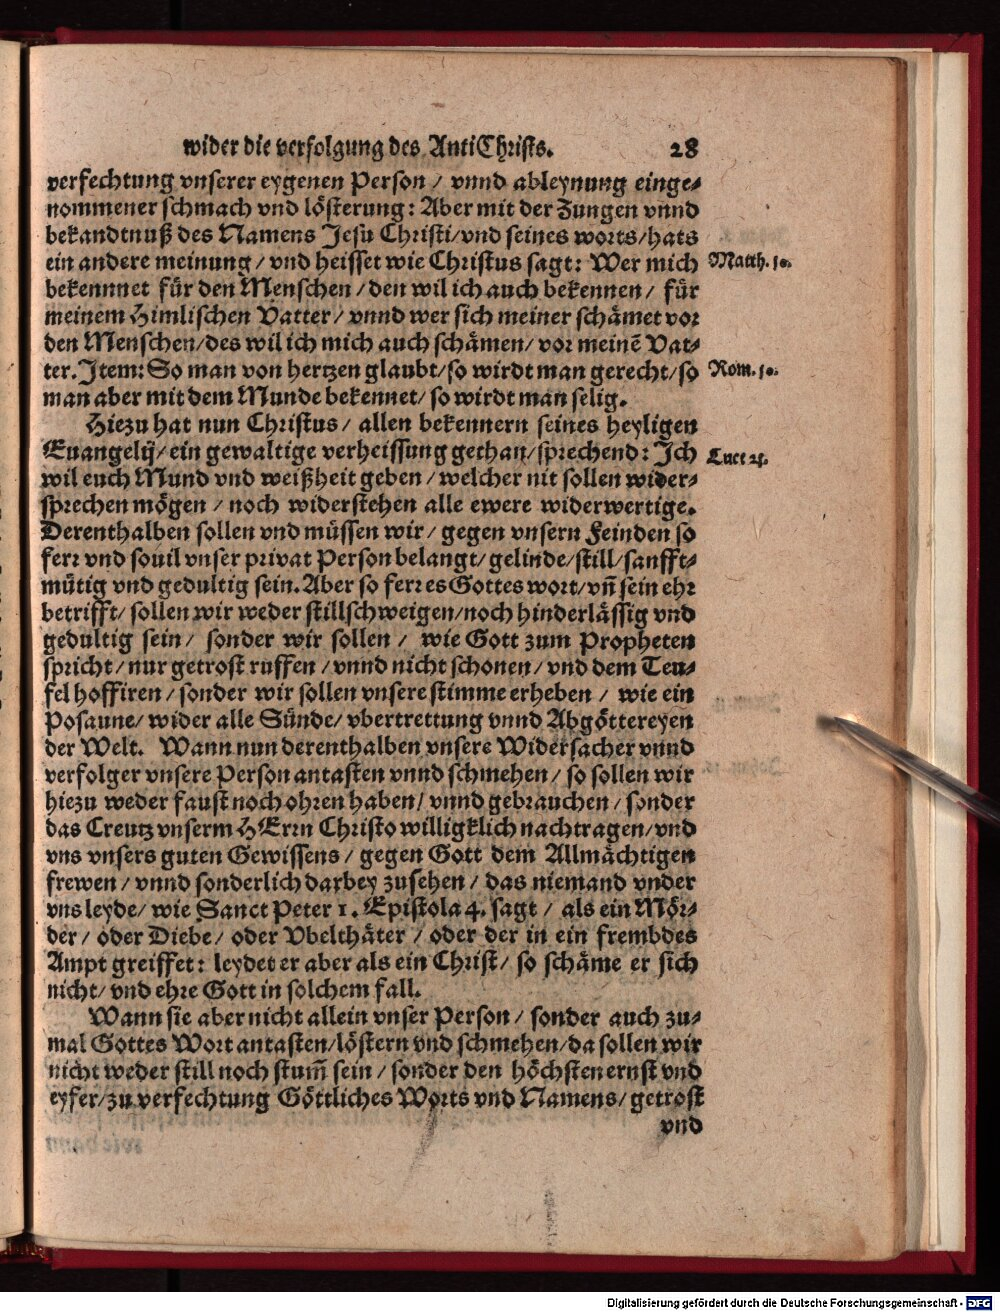 wider die verfolgung des AntiChrists. 28
verfechtung vnserer eygenen Person / vnnd ableynung einge⸗
nommener schmach vnd lösterung: Aber mit der Zungen vnnd
bekandtnuß des Namens Jesu Christi/vnd seines worts/hats
ein andere meinung / vnd heisset wie Christus sagt: Wer mich
Matth. 10.
bekennnet für den Menschen / den wil ich auch bekennen / für
meinem Himlischen Vatter / vnnd wer sich meiner schämet vor
den Menschen/des wil ich mich auch schämen/ vor meinē Vat⸗
ter. Item: So man von hertzen glaubt/so wirdt man gerecht/so
Rom. 10.
man aber mit dem Munde bekennet/ so wirdt man selig.
Hiezu hat nun Christus / allen bekennern seines heyligen
Euangelij/ ein gewaltige verheissung gethan/sprechend: Ich
Luce 21.
wil euch Mund vnd weißheit geben / welcher nit sollen wider⸗
sprechen mögen / noch widerstehen alle ewere widerwertige.
Derenthalben sollen vnd müssen wir / gegen vnsern Feinden so
ferr vnd souil vnser privat Person belangt/ gelinde/still/sanfft⸗
mütig vnd gedultig sein. Aber so ferr es Gottes wort/vñ sein ehr
betrifft/ sollen wir weder stillschweigen/noch hinderlässig vnd
gedultig sein / sonder wir sollen / wie Gott zum Propheten
spricht / nur getrost ruffen / vnnd nicht schonen/ vnd dem Teu⸗
fel hoffiren / sonder wir sollen vnsere stimme erheben / wie ein
Posaune/ wider alle Sünde/ vbertrettung vnnd Abgöttereyen
der Welt. Wann nun derenthalben vnsere Widersacher vnnd
verfolger vnsere Person antasten vnnd schmehen / so sollen wir
hiezu weder faust noch ohren haben/ vnnd gebrauchen / sonder
das Creutz vnserm HErrn Christo willigklich nachtragen/vnd
vns vnsers guten Gewissens / gegen Gott dem Allmächtigen
frewen / vnnd sonderlich darbey zusehen / das niemand vnder
vns leyde/ wie Sanct Peter 1. Epistola 4. sagt / als ein Mör⸗
der / oder Diebe / oder Vbelthäter / oder der in ein frembdes
Ampt greiffet: leydet er aber als ein Christ / so schäme er sich
nicht/ vnd ehre Gott in solchem fall.
Wann sie aber nicht allein vnser Person / sonder auch zu⸗
mal Gottes Wort antasten/löstern vnd schmehen/da sollen wir
nicht weder still noch stum̄ sein / sonder den höchsten ernst vnd
eyfer/zu verfechtung Göttliches Worts vnd Namens/ getrost
vnd
Digitalisierung gefördert durch die Deutsche Forschungsgemeinschaft - DFG